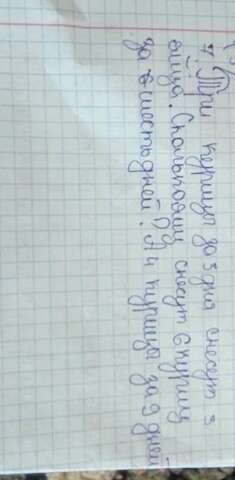 7. Три курицы за 3 дня снесут 3
яйца. Сколько яиц снесут 6 куриц
за 6 шесть дней? А 4 курицы за 9 дней